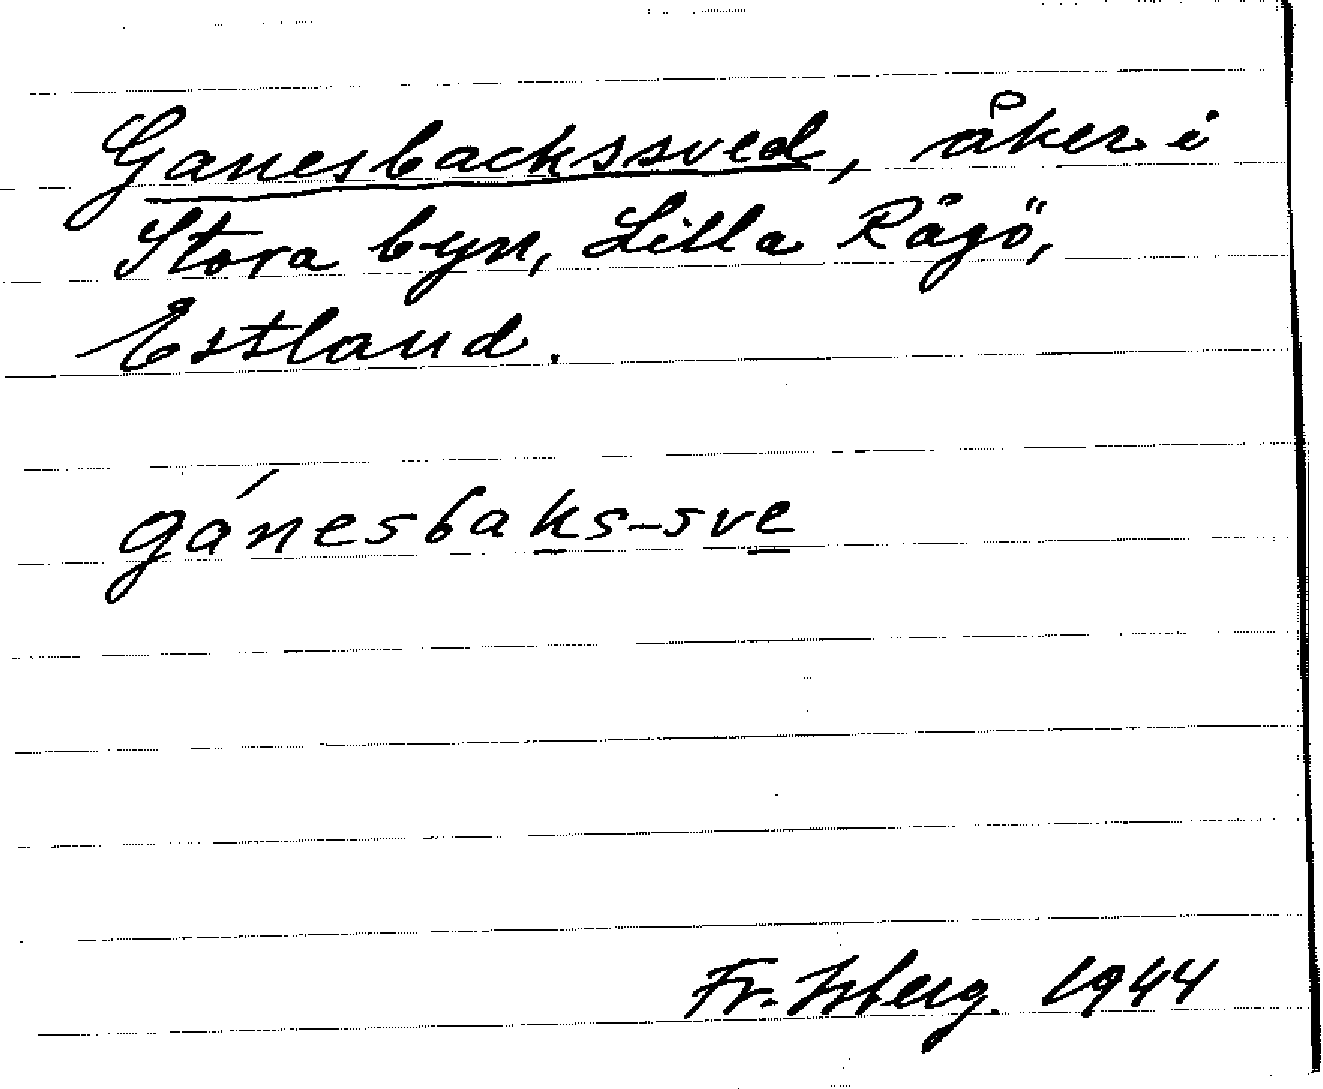 Ganesbackssved, åker i
Stora byn, Lilla Rågö,
Estland.
gánesbaks-sve
Fr. Isberg. 1944